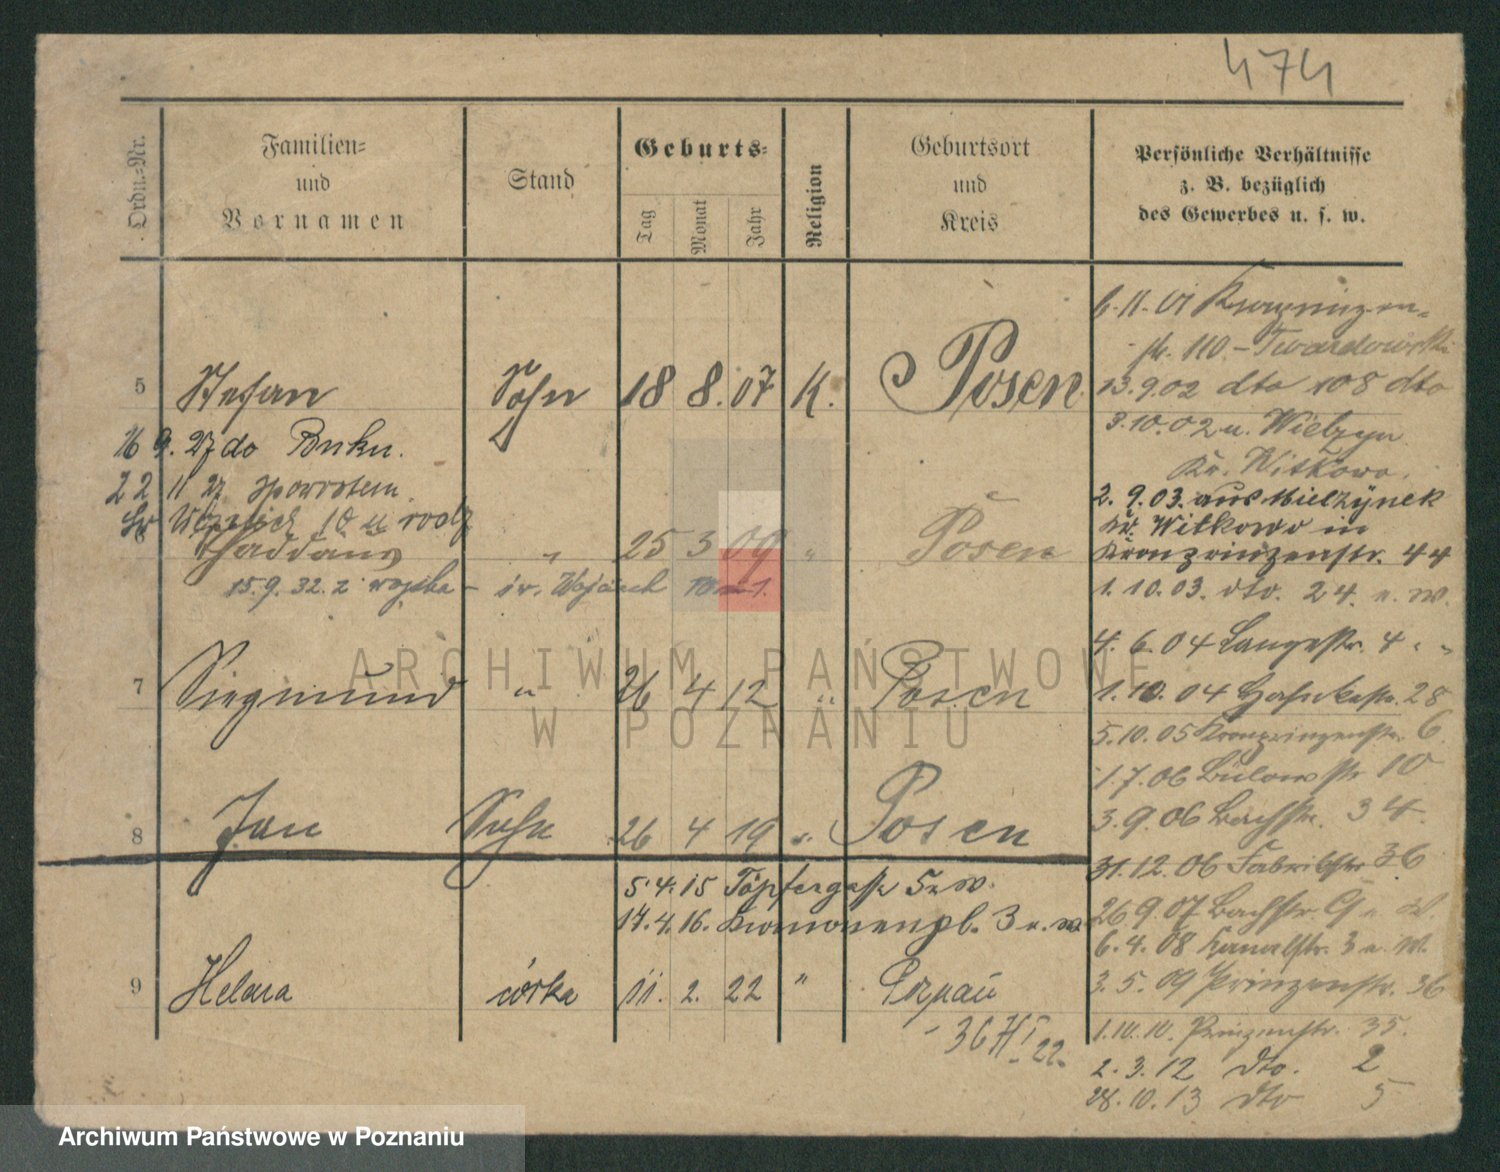 474
Ordn.-Nr.
Familien-
und
Vornamen
Stand
Geburts-
Tag
Monat
Jahr
Religion
Geburtsort
und
Kreis
Persönliche Verhältnisse
z. B. bezüglich
des Gewerbes u. s. w.
5 Stefan Sohn 18 8. 07 K. Posen
16 9. 27 do Buku.
22 11 27 z powrotem
św Wojciech 10 u rodz
Thaddäus " 25 3 09 " Posen
15.9.32. z wojska - św. Wojciech 10 m 1.
7 Siegmund " 26 4 12 " Posen
8 Jan Sohn 26 4 19 " Posen
5.4.15 Töpfergasse 5 u. W.
14.4.16. Kromonenpl. 3 u. W.
9 Helena córka 11. 2. 22 " Poznań
6.11.01 Kronprinzen-
str. 110 - Twardowski
13.9.02 dto 108 dto
3.10.02 n. Wielzyn
Kr. Witkowo.
2.9.03. aus Mielzynek
Kr. Witkowo in
Kronprinzenstr. 44
1.10.03. dto. 24. u. W.
4.6.04 Langestr. 4 " "
1.10.04 28
5.10.05 Kronprinzenstr. 6
1.7.06 Bülowstr 10
3.9.06 Bachstr. 34.
31.12.06 Fabrikstr 36
26.9.07 Bachstr. 9 u. W
6.4.08 Kanalstr. 3 u. W.
3.5.09 Prinzenstr. 36
1.10.10. Prinzenstr. 35.
2.3.12 dto. 2
28.10.13 dto 5
ARCHIWUM PAŃSTWOWE
W POZNANIU
Archiwum Państwowe w Poznaniu